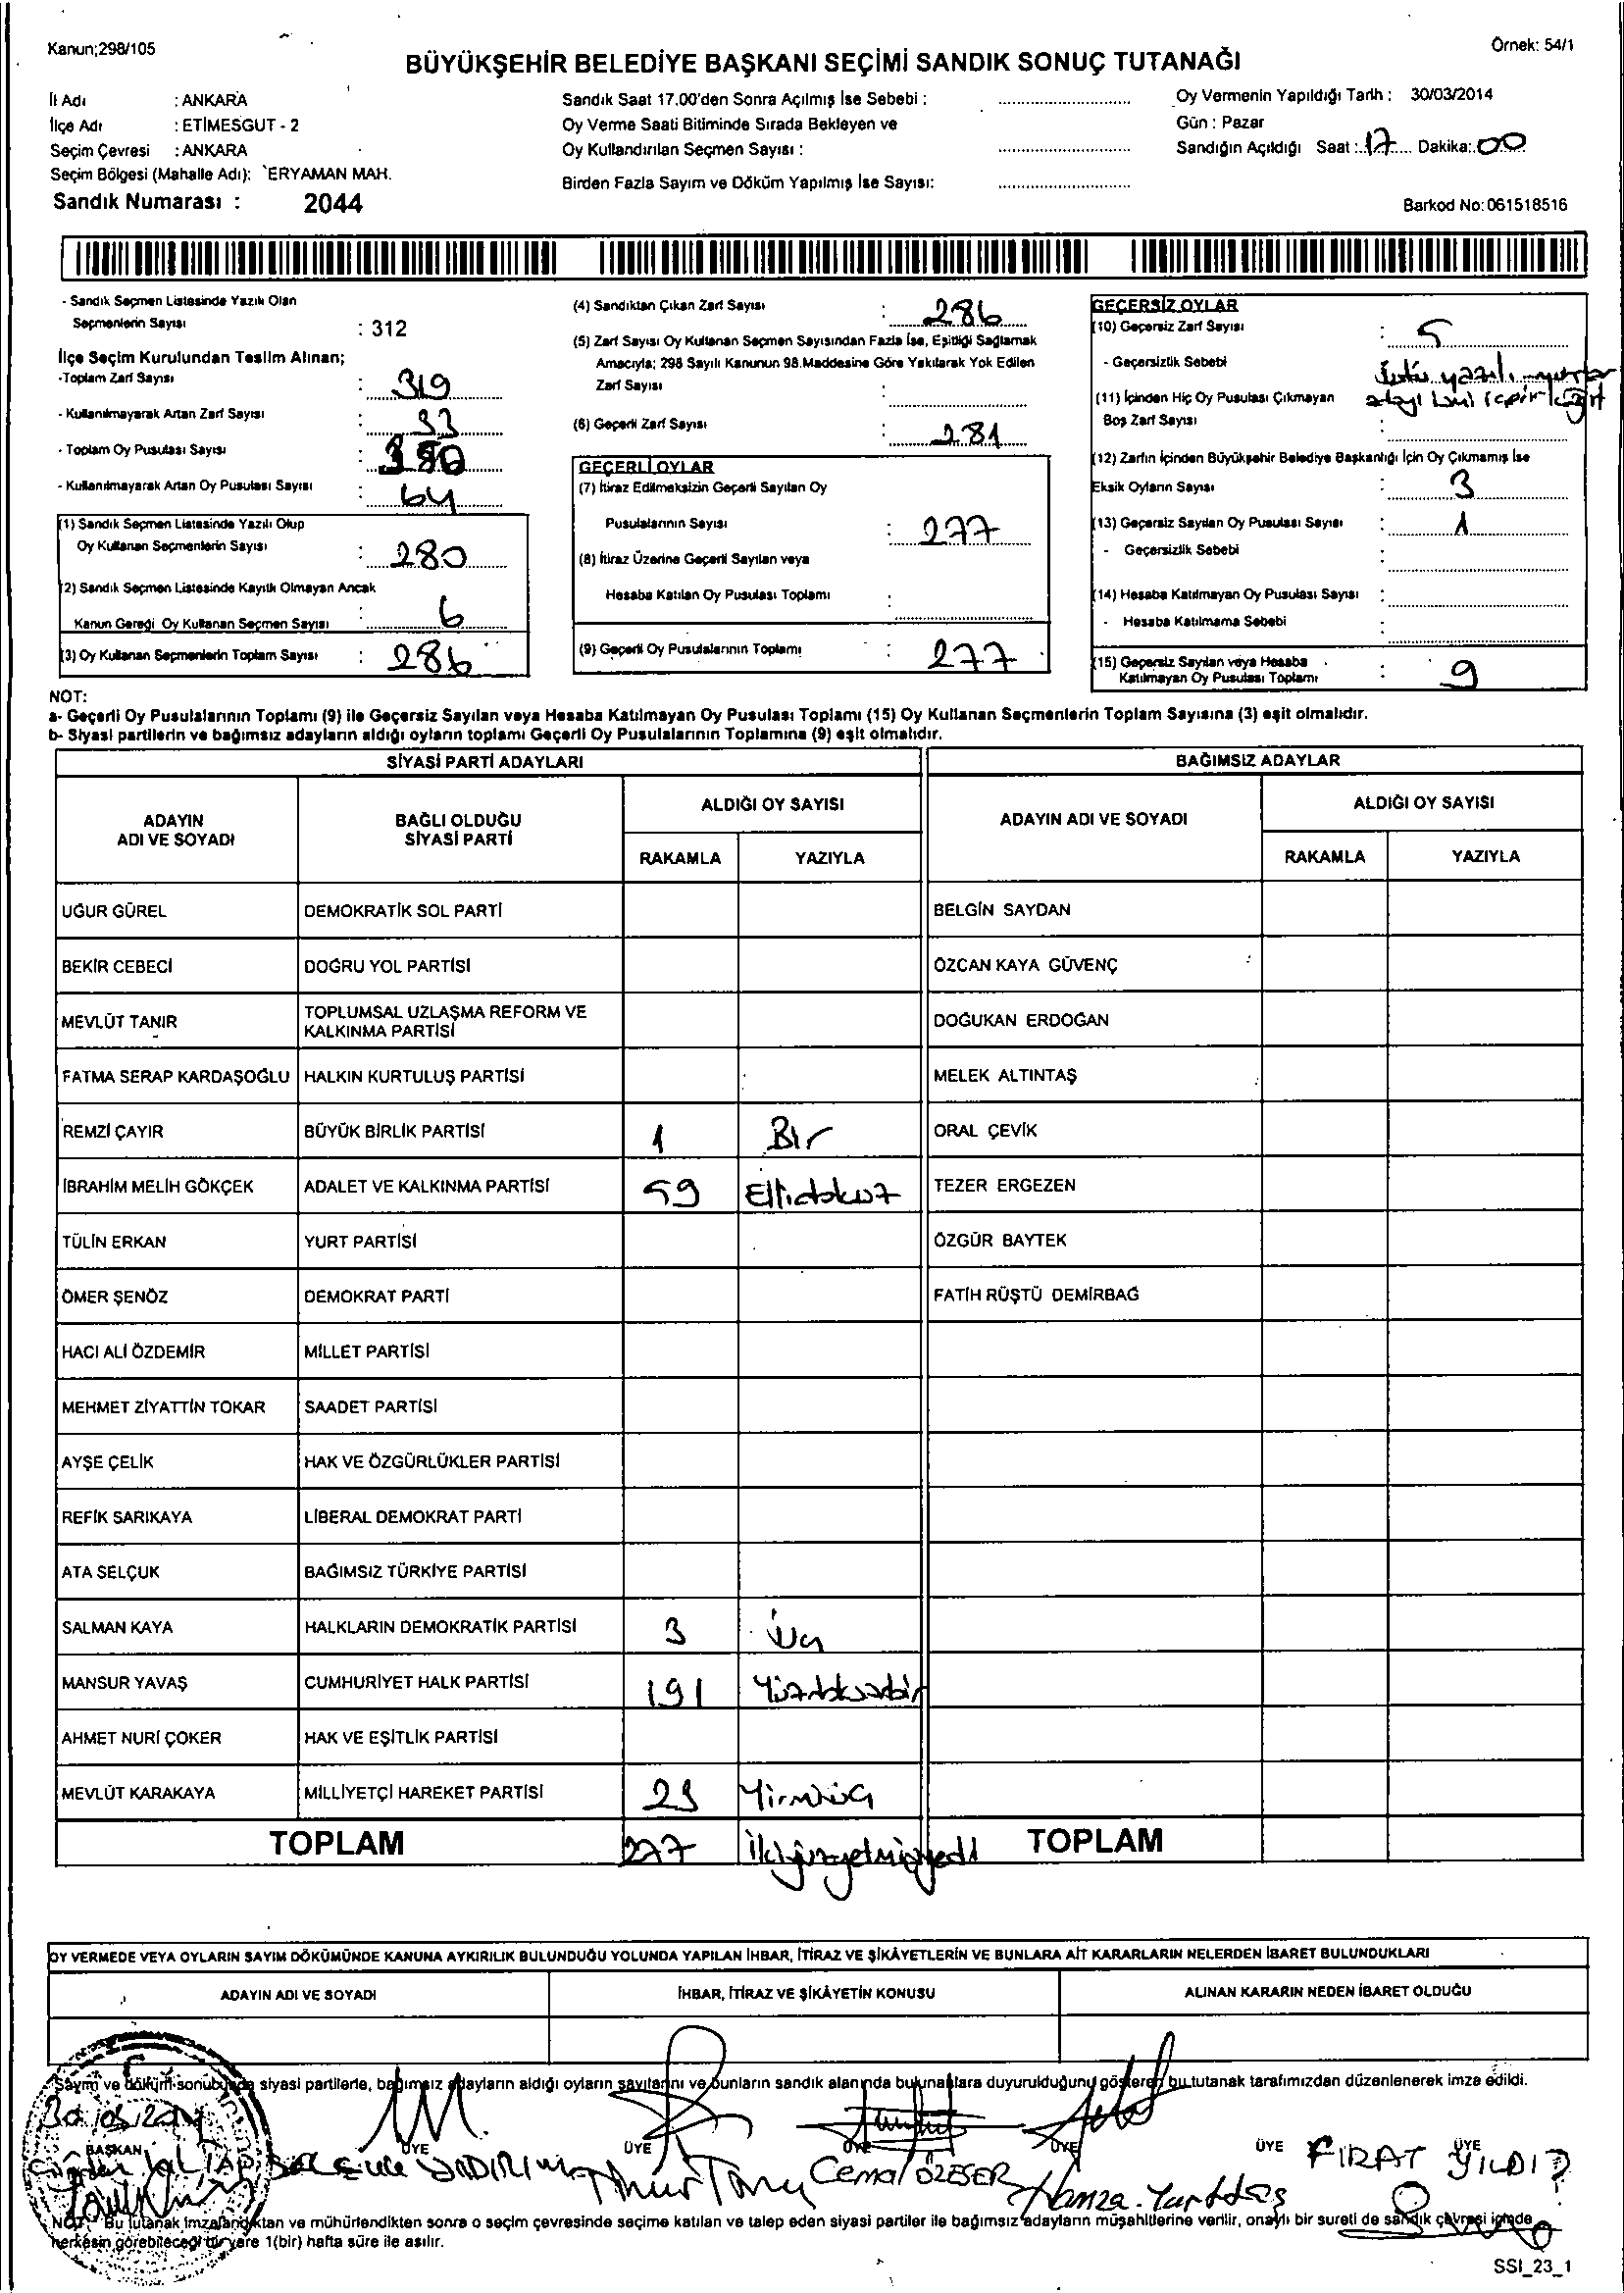 Kanun;298/105
Örnek: 54/1
BÜYÜKŞEHİR BELEDİYE BAŞKANI SEÇİMİ SANDIK SONUÇ TUTANAĞI
İl Adı : ANKARA
İlçe Adı : ETİMESGUT - 2
Seçim Çevresi : ANKARA
Seçim Bölgesi (Mahalle Adı): ERYAMAN MAH.
Sandık Numarası : 2044
Sandık Saat 17.00'den Sonra Açılmış İse Sebebi :
Oy Verme Saati Bitiminde Sırada Bekleyen ve
Oy Kullandırılan Seçmen Sayısı :
Birden Fazla Sayım ve Döküm Yapılmış İse Sayısı:
Oy Vermenin Yapıldığı Tarih : 30/03/2014
Gün : Pazar
Sandığın Açıldığı Saat : 17 Dakika: 00
Barkod No: 061518516
- Sandık Seçmen Listesinde Yazılı Olan
Seçmenlerin Sayısı : 312
İlçe Seçim Kurulundan Teslim Alınan;
-Toplam Zarf Sayısı : 319
- Kullanılmayarak Artan Zarf Sayısı : 33
- Toplam Oy Pusulası Sayısı : 350
- Kullanılmayarak Artan Oy Pusulası Sayısı : 64
(1) Sandık Seçmen Listesinde Yazılı Olup
Oy Kullanan Seçmenlerin Sayısı : 280
(2) Sandık Seçmen Listesinde Kayıtlı Olmayan Ancak
Kanun Gereği Oy Kullanan Seçmen Sayısı : 6
(3) Oy Kullanan Seçmenlerin Toplam Sayısı : 286
(4) Sandıktan Çıkan Zarf Sayısı : 286
(5) Zarf Sayısı Oy Kullanan Seçmen Sayısından Fazla İse, Eşitliği Sağlamak
Amacıyla; 298 Sayılı Kanunun 98.Maddesine Göre Yakılarak Yok Edilen
Zarf Sayısı :
(6) Geçerli Zarf Sayısı : 281
GEÇERLİ OYLAR
(7) İtiraz Edilmeksizin Geçerli Sayılan Oy
Pusulalarının Sayısı : 277
(8) İtiraz Üzerine Geçerli Sayılan veya
Hesaba Katılan Oy Pusulası Toplamı :
(9) Geçerli Oy Pusulalarının Toplamı : 277
GEÇERSİZ OYLAR
(10) Geçersiz Zarf Sayısı : 5
- Geçersizlik Sebebi : üstü yazılı
(11) İçinden Hiç Oy Pusulası Çıkmayan
Boş Zarf Sayısı :
(12) Zarfın İçinden Büyükşehir Belediye Başkanlığı İçin Oy Çıkmamış İse
Eksik Oyların Sayısı : 3
(13) Geçersiz Sayılan Oy Pusulası Sayısı : 1
- Geçersizlik Sebebi :
(14) Hesaba Katılmayan Oy Pusulası Sayısı :
- Hesaba Katılmama Sebebi :
(15) Geçersiz Sayılan veya Hesaba
Katılmayan Oy Pusulası Toplamı : 9
NOT:
a- Geçerli Oy Pusulalarının Toplamı (9) ile Geçersiz Sayılan veya Hesaba Katılmayan Oy Pusulası Toplamı (15) Oy Kullanan Seçmenlerin Toplam Sayısına (3) eşit olmalıdır.
b- Siyasi partilerin ve bağımsız adayların aldığı oyların toplamı Geçerli Oy Pusulalarının Toplamına (9) eşit olmalıdır.
SİYASİ PARTİ ADAYLARI
BAĞIMSIZ ADAYLAR
ADAYIN ADI VE SOYADI
BAĞLI OLDUĞU SİYASİ PARTİ
ALDIĞI OY SAYISI
RAKAMLA YAZIYLA
ADAYIN ADI VE SOYADI
ALDIĞI OY SAYISI
RAKAMLA YAZIYLA
UĞUR GÜREL DEMOKRATİK SOL PARTİ BELGİN SAYDAN
BEKİR CEBECİ DOĞRU YOL PARTİSİ ÖZCAN KAYA GÜVENÇ
MEVLÜT TANIR TOPLUMSAL UZLAŞMA REFORM VE KALKINMA PARTİSİ DOĞUKAN ERDOĞAN
FATMA SERAP KARDAŞOĞLU HALKIN KURTULUŞ PARTİSİ MELEK ALTINTAŞ
REMZİ ÇAYIR BÜYÜK BİRLİK PARTİSİ 1 Bir ORAL ÇEVİK
İBRAHİM MELİH GÖKÇEK ADALET VE KALKINMA PARTİSİ 59 Ellidokuz TEZER ERGEZEN
TÜLİN ERKAN YURT PARTİSİ ÖZGÜR BAYTEK
ÖMER ŞENÖZ DEMOKRAT PARTİ FATİH RÜŞTÜ DEMİRBAĞ
HACI ALİ ÖZDEMİR MİLLET PARTİSİ
MEHMET ZİYATTİN TOKAR SAADET PARTİSİ
AYŞE ÇELİK HAK VE ÖZGÜRLÜKLER PARTİSİ
REFİK SARIKAYA LİBERAL DEMOKRAT PARTİ
ATA SELÇUK BAĞIMSIZ TÜRKİYE PARTİSİ
SALMAN KAYA HALKLARIN DEMOKRATİK PARTİSİ 3 Üç
MANSUR YAVAŞ CUMHURİYET HALK PARTİSİ 191 Yüzdoksanbir
AHMET NURİ ÇOKER HAK VE EŞİTLİK PARTİSİ
MEVLÜT KARAKAYA MİLLİYETÇİ HAREKET PARTİSİ 23 Yirmiüç
TOPLAM 277 İkiyüzyetmişyedi TOPLAM
OY VERMEDE VEYA OYLARIN SAYIM DÖKÜMÜNDE KANUNA AYKIRILIK BULUNDUĞU YOLUNDA YAPILAN İHBAR, İTİRAZ VE ŞİKÂYETLERİN VE BUNLARA AİT KARARLARIN NELERDEN İBARET BULUNDUKLARI
ADAYIN ADI VE SOYADI İHBAR, İTİRAZ VE ŞİKÂYETİN KONUSU ALINAN KARARIN NEDEN İBARET OLDUĞU
Sayım ve döküm sonucunda siyasi partilerle, bağımsız adayların aldığı oyların sayılarını ve bunların sandık alanında bulunanlara duyurulduğunu gösteren bu tutanak tarafımızdan düzenlenerek imza edildi.
30/03/2014
BAŞKAN ÜYE ÜYE ÜYE ÜYE ÜYE ÜYE
YILDIRIM Cemal ÖZESER Hamza Yurttaş FIRAT YILDIZ
NOT: Bu tutanak imzalandıktan ve mühürlendikten sonra o seçim çevresinde seçime katılan ve talep eden siyasi partiler ile bağımsız adayların müşahitlerine verilir, onaylı bir sureti de sandık çevresi içinde
herkesin görebileceği bir yere 1(bir) hafta süre ile asılır.
SSI_23_1